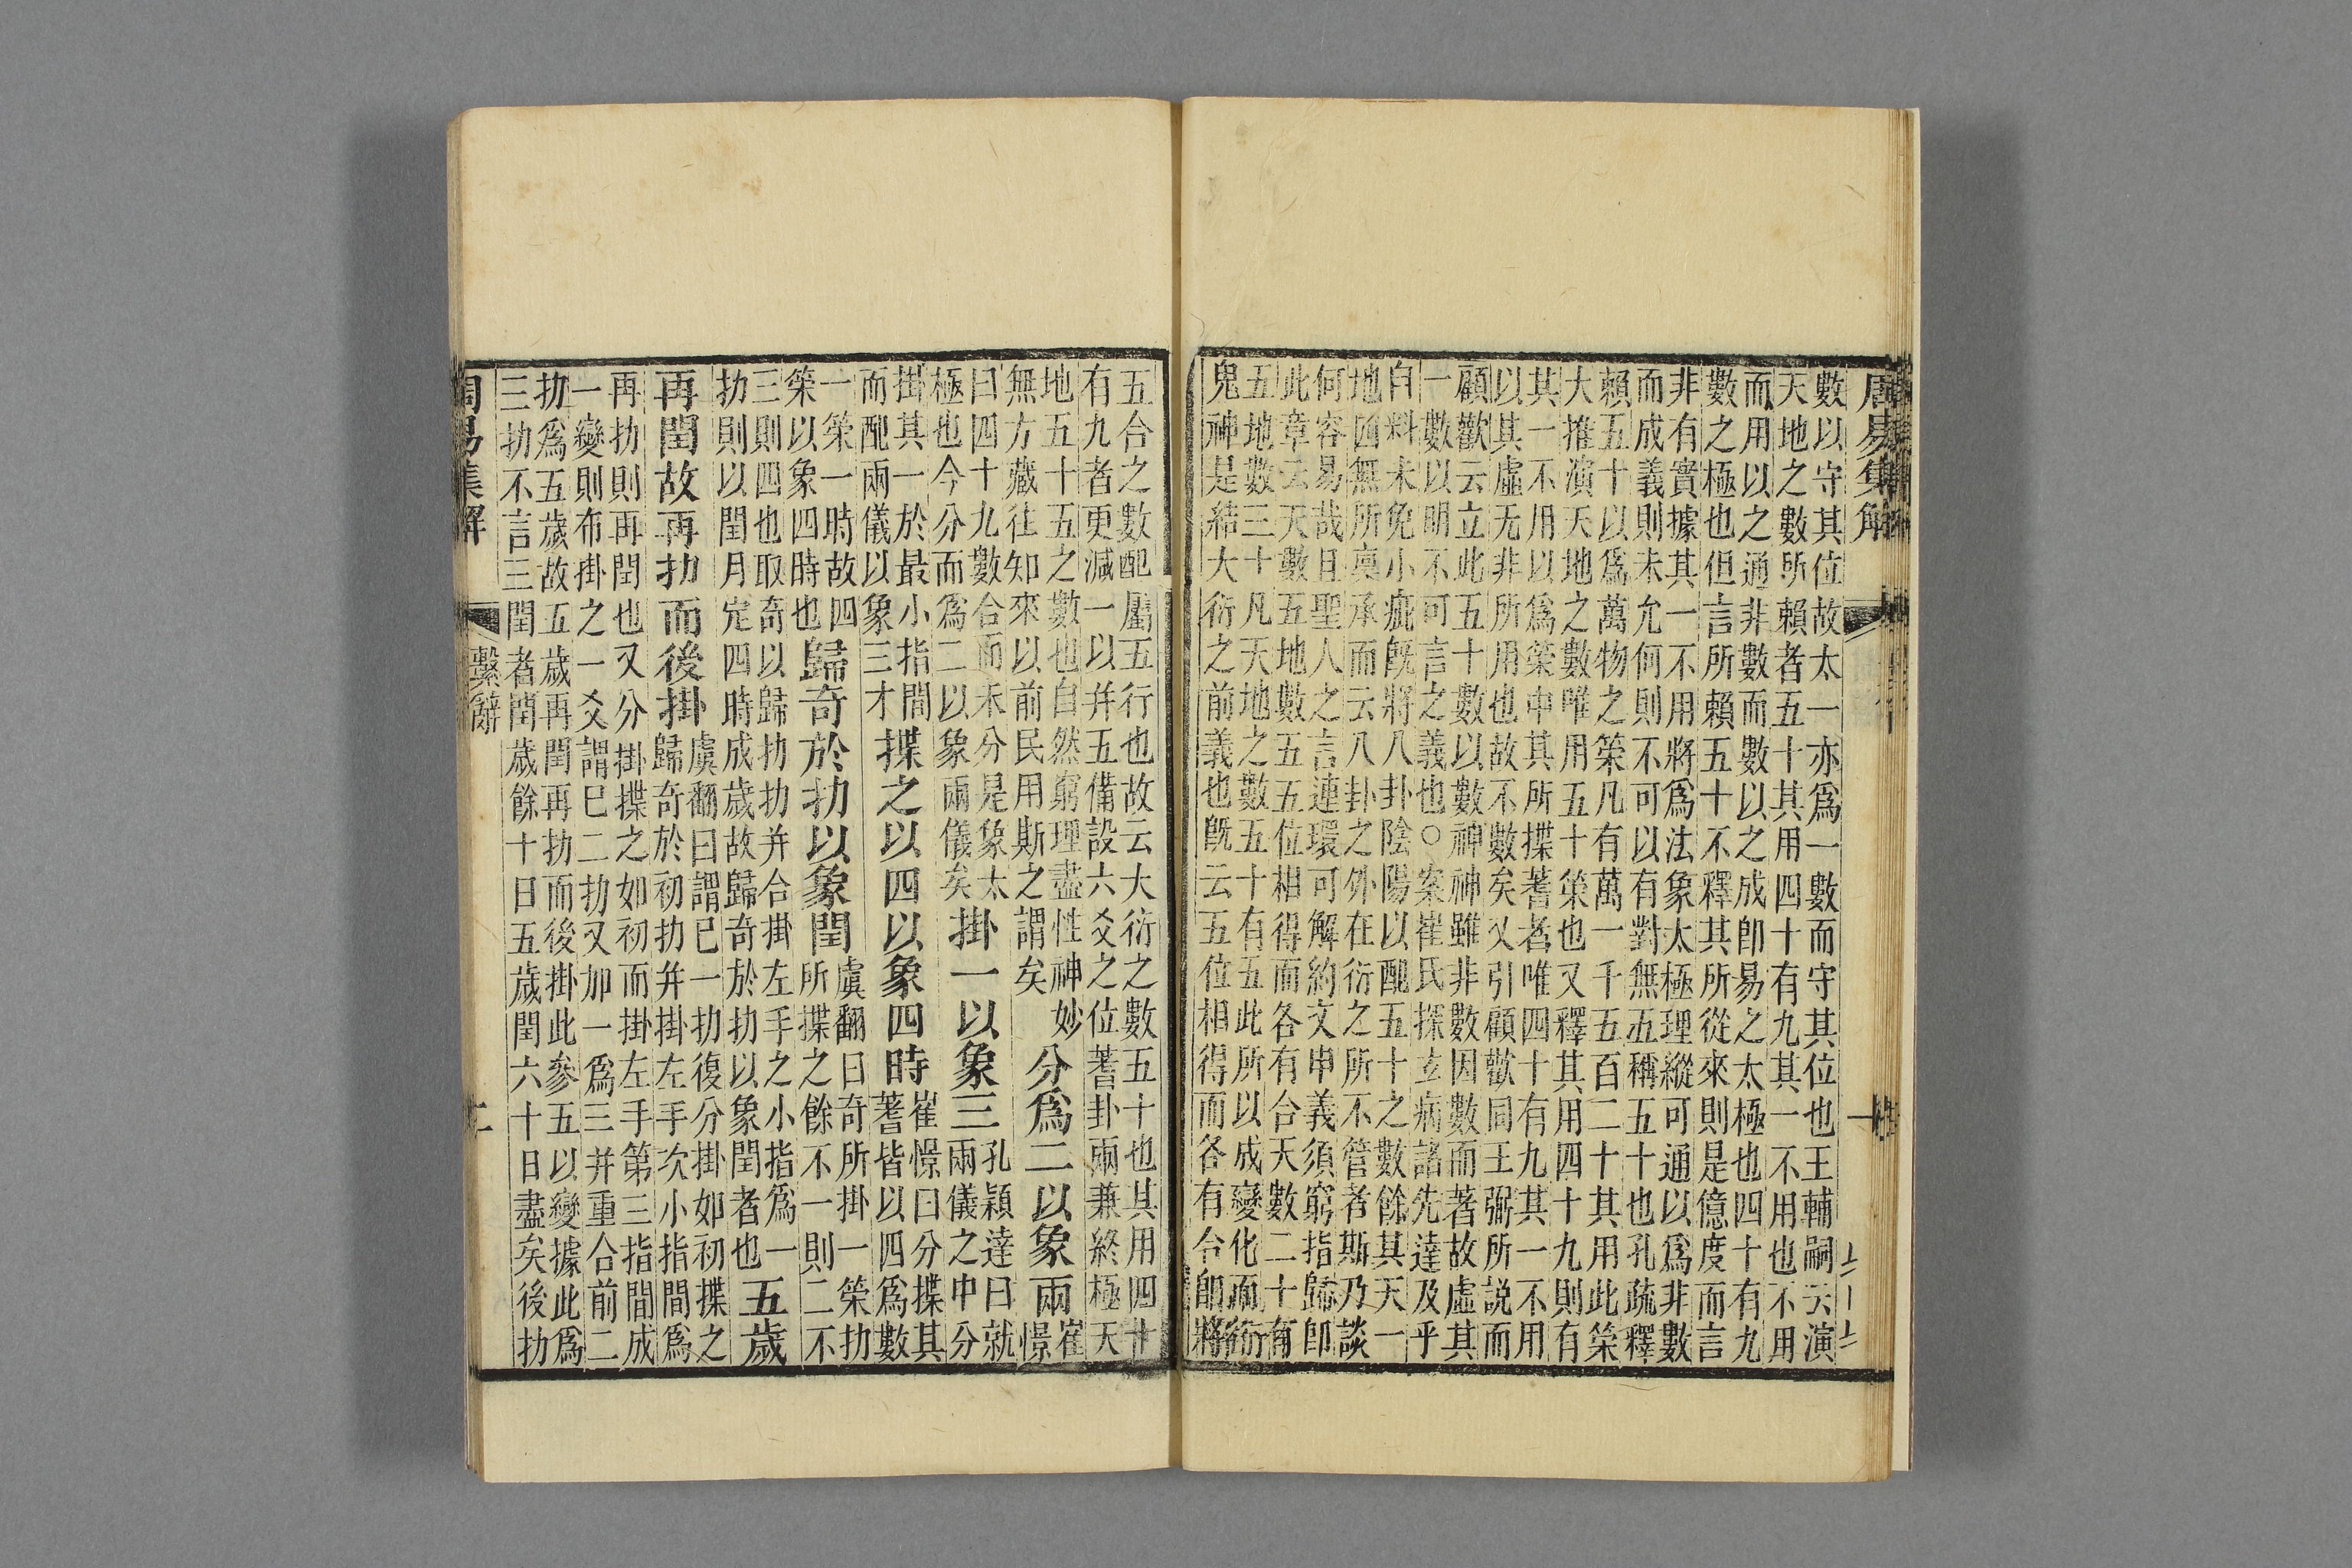 周易集解
數以守其位故太一亦爲一數而守其位也王輔嗣云演
天地之數所賴者五十其用四十有九其一不用也不用
而用以之通非數而數以之成卽易之太極也四十有九
數之極也但言所賴五十不釋其所從來則是億度而言
非有實據其一不用將爲法象太極理縱可通以爲非數
而成義則未允何則不可以有對無五稱五十也孔疏釋
賴五十以爲萬物之策凡有萬一千五百二十其用此策
大推演天地之數唯用五十策也又釋其用四十九則有
其一不用以爲策中其所揲蓍者唯四十有九其一不用
以其虛无非所用也故不數矣又引顧歡同王弼所説而
顧歡云立此五十數以數神神雖非數因數而著故虛其
一數以明不可言之義也○案崔氏探玄病諸先達及乎
自料未免小疵既將八卦陰陽以配五十之數餘其天一
地四無所稟承而云八卦之外在衍之所不管者斯乃談
何容易哉且聖人之言連環可解約文申義須窮指歸卽
此章云天數五地數五五位相得而各有合天數二十有
五地數三十凡天地之數五十有五此所以成變化而行
鬼神是結大衍之前義也既云五位相得而各有合卽將
五合之數配屬五行也故云大衍之數五十也其用四十
有九者更減一以并五備設六爻之位蓍卦兩兼終極天
地五十五之數也自然窮理盡性神妙
無方藏往知來以前民用斯之謂矣
分爲二以象兩
崔憬
曰四十九數合而未分是象太
極也今分而爲二以象兩儀矣
掛一以象三
孔穎達曰就
兩儀之中分
掛其一於最小指間
而配兩儀以象三才
揲之以四以象四時
崔憬曰分揲其
蓍皆以四爲數
一策一時故四
策以象四時也
歸奇於扐以象閏
虞翻曰奇所掛一策扐
所揲之餘不一則二不
三則四也取奇以歸扐扐并合掛左手之小指爲一
扐則以閏月定四時成歲故歸奇於扐以象閏者也
五歲
再閏故再扐而後掛
虞翻曰謂已一扐復分掛如初揲之
歸奇於初扐并掛左手次小指間爲
再扐則再閏也又分掛揲之如初而掛左手第三指間成
一變則布掛之一爻謂已二扐又加一爲三并重合前二
扐爲五歲故五歲再閏再扐而後掛此參五以變據此爲
三扐不言三閏者閏歲餘十日五歲閏六十日盡矣後扐
周易集解
繫辭